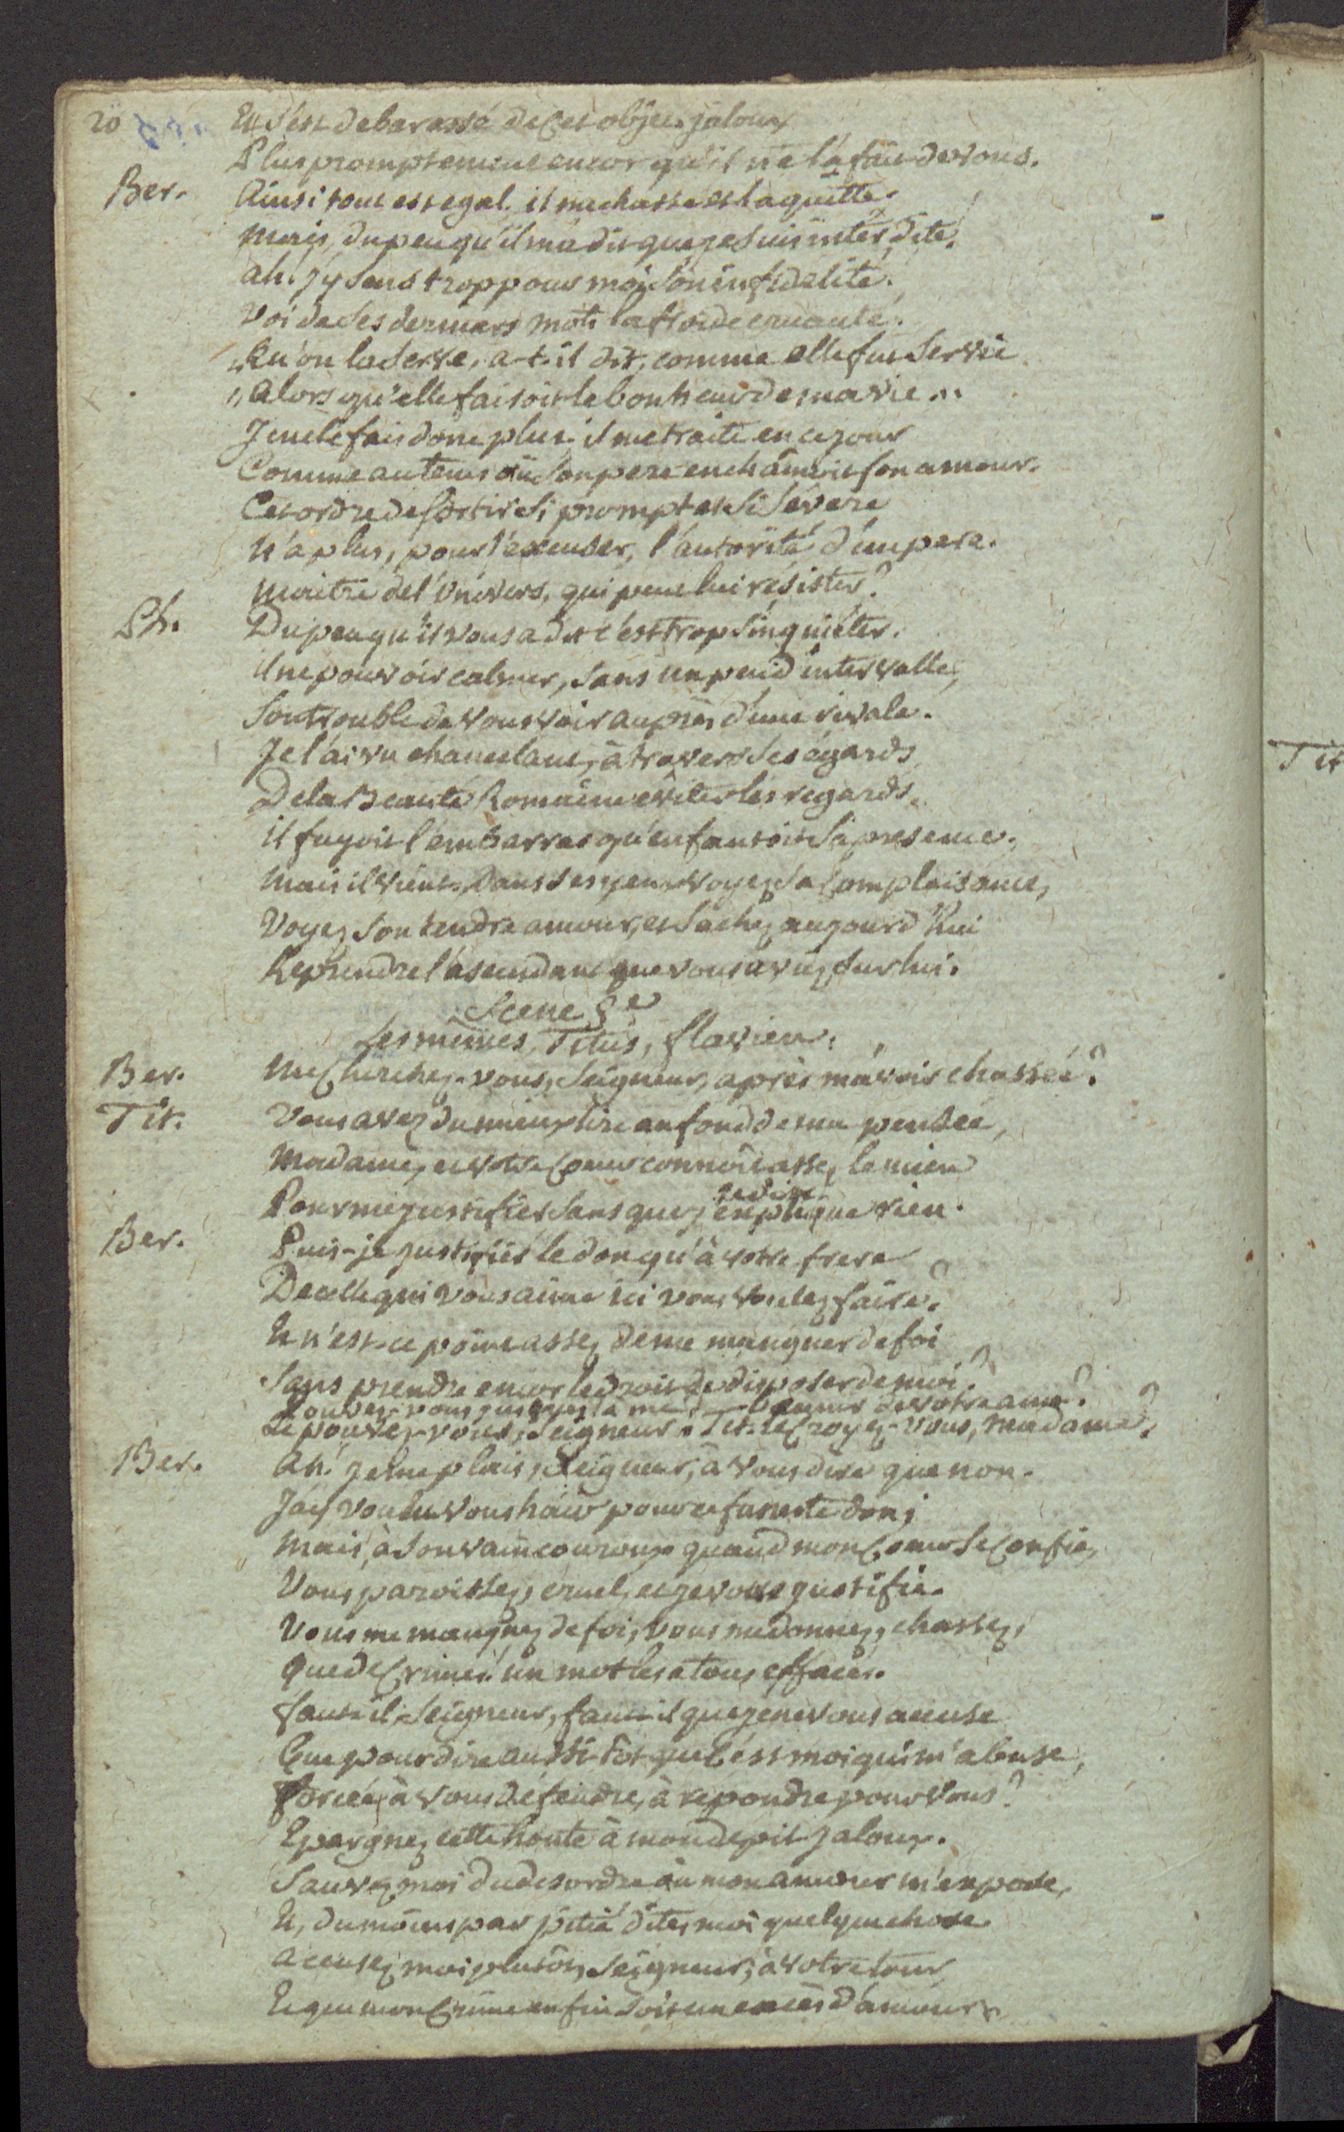 20 Et s'est debarassé de cet objet jaloux
Plus promptement encor qu'il ne l'a fait de vous.
Ber. Ainsi tout est egal. il me chasse et la quitte.
Mais, du peu qu'il m'a dit que je suis interdite!
ah! j'y sens trop pour moi son infidelité.
Voi de ses derniers mots la froide cruauté.
„ Qu'on la serve, a-t-il dit, comme elle fut servie
„ Alors qu'elle faisoit le bonheur de ma vie...
Je ne le fais donc plus. il me traite en ce jour
Comme au tems où son pere enchaînoit son amour.
Cet ordre de sortir si prompt et si severe
N'a plus, pour l'excuser, l'autorité d'un pere.
Maitre de l'Univers, qui peut lui résister?
Ph. Du peu qu'il vous a dit c'est trop s'inquiéter.
Il ne pouvoit calmer, sans un peu d'intervalle,
Son trouble de vous voir auprès d'une rivale.
Je l'ai vu chancelant, à travers ses égards
De la Beauté Romaine eviter les regards.
il fuyoit l'embarras qu'enfantoit sa presence.
Mais il vient. Dans ses yeux voyez sa complaisance,
Voyez son tendre amour, et sachez aujourd'hui
Reprendre l'ascendant que vous aviez sur lui.
Scene 8e
Les mêmes, Titus, flavien.
Ber. Me cherchez-vous, Seigneur, après m'avoir chassée?
Tit. Vous avez du mieux lire au fond de ma pensée,
Madame, et votre coeur connoit assez le mien
redise
Pour me justifier sans que j'explique rien.
Ber. Puis-je justifier le don qu'à votre frere
De celle qui vous aime ici vous voulez faire?
Et n'est-ce point assez de me manquer de foi
Sans prendre encor le droit de disposer de moi?
Pouvez-vous jusques là me de votre ame?
Le pouvez-vous, Seigneur. Tit. Le croyez-vous, Madame?
Ber. Ah! je me plais, Seigneur, à vous dire que non.
J'ai voulu vous haïr pour ce funeste don;
Mais, à son vain couroux quand mon coeur se confie,
Vous paroissez, cruel, et je vous justifie.
Vous me manquez de foi, vous me donnez, chassez,
Que de crimes! un mot les a tous effacés.
Faut-il, Seigneur, faut-il que je ne vous accuse
Que pour dire aussi-tôt que c'est moi qui m'abuse,
Forcée à vous défendre, à repondre pour vous?
Epargnez cette honte à mon depit jaloux.
Sauvez moi du desordre où mon amour m'expose,
Et, du moins par pitié dites moi quelque chose.
Accusez moi plutôt, Seigneur, à votre tour
Et que mon crime enfin soit un excès d'amour.
Tit